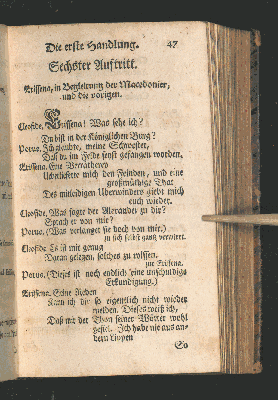 Die erste Handlung. 47
Sechster Auftritt.
Erissena, in Begleitung der Macedonier,
und die vorigen.
Cleofide. Erissena! Was sehe ich?
Du bist in der Königlichen Burg?
Porus. Ich glaubte, meine Schwester,
Daß du im Felde seyst gefangen worden.
Erissena. Eine Verrätherey
Ueberlieferte mich den Feinden, und eine
großmüthige That
Des mitleidigen Ueberwinders giebt mich
euch wieder.
Cleofide. Was sagte der Alexander zu dir?
Sprach er von mir?
Porus. (Was verlanget sie doch von mir.)
zu sich selbst ganz verwirrt.
Cleofide. Es ist mir genug
Daran gelegen, solches zu wissen.
zur Erissena.
Porus. (Dieses ist noch endlich eine unschuldige
Erkundigung.)
Erissena. Seine Reden
Kann ich dir so eigentlich nicht wieder
melden. Dieses weiß ich,
Daß mir der Thon seiner Wörter wohl
gefiel. Ich habe nie aus an-
dern Lippen
So